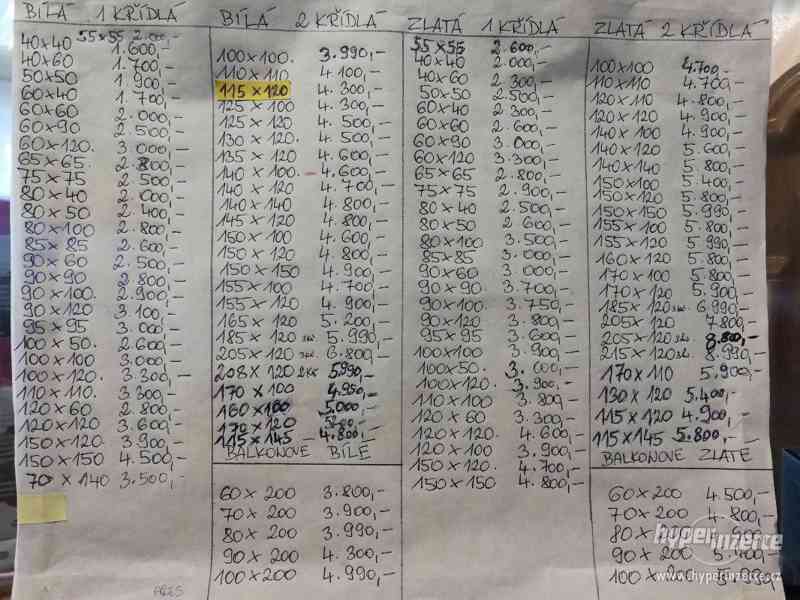 BÍLÁ 1 KŘÍDLÁ
55×55 2.000,-
40×40 1.600,-
40×60 1.700,-
50×50 1.900,-
60×40 1.700,-
60×60 2.000,-
60×90 2.500,-
60×120. 3.000,-
65×65. 2.800,-
75×75 2.500,-
80×40 2.000,-
80×50 2.400,-
80×100 2.800,-
85×85 2.600,-
90×60 2.500,-
90×90 2.800,-
90×100. 2.900,-
90×120 3.100,-
95×95 3.000,-
100×50. 2.600,-
100×100 3.000,-
100×120. 3.300,-
110×110. 3.300,-
120×60 2.800,-
120×120 3.600,-
150×120. 3.900,-
150×150 4.500,-
70×140 3.500,-
BÍLÁ 2 KŘÍDLÁ
100×100. 3.990,-
110×110 4.100,-
115×120 4.300,-
125×100 4.300,-
125×120 4.500,-
130×120. 4.500,-
135×120 4.600,-
140×100. 4.600,-
140×120 4.700,-
140×140 4.800,-
145×120 4.800,-
150×100 4.600,-
150×120 4.800,-
150×150 4.900,-
155×100 4.700,-
155×120 4.900,-
165×120 5.200,-
185×120 5.990,-
205×120 6.800,-
208×120 5.990,-
170×100 4.950,-
160×100 5.000,-
170×120
115×145 4.800,-
BALKONOVE BÍLÉ
60×200 3.800,-
70×200 3.900,-
80×200 3.990,-
90×200 4.300,-
100×200 4.990,-
ZLATÁ 1 KŘÍDLÁ
55×55 2.600,-
40×40 2.000,-
40×60 2.300,-
50×50 2.500,-
60×40 2.300,-
60×60 2.600,-
60×90 3.000,-
60×120 3.300,-
65×65 2.800,-
75×75 2.900,-
80×40 2.500,-
80×50 2.600,-
80×100 3.500,-
85×85 3.000,-
90×60 3.000,-
90×90 3.700,-
90×100 3.750,-
90×120 3.800,-
95×95 3.600,-
100×100 3.900,-
100×50. 3.000,-
100×120. 3.900,-
110×100 3.800,-
120×60 3.300,-
120×120. 4.600,-
120×100 3.900,-
150×120 4.700,-
150×150 4.800,-
ZLATÁ 2 KŘÍDLÁ
100×100 4.700,-
110×110 4.700,-
120×110 4.800,-
120×120 4.900,-
140×100 4.900,-
140×120 5.600,-
140×140 5.800,-
150×100 5.400,-
150×120 5.800,-
150×150 5.990,-
155×100 5.800,-
155×120 5.990,-
160×120 5.800,-
170×100 5.800,-
170×120 5.900,-
185×120 6.990,-
205×120 7.800,-
205×120 8.800,-
215×120 8.990,-
170×110 5.900,-
130×120 5.400,-
115×120 4.900,-
115×145 5.800,-
BALKONOVE ZLATE
60×200 4.500,-
70×200 4.800,-
80×200
90×200
100×200
hyperinzerce
www.hyperinzerce.cz